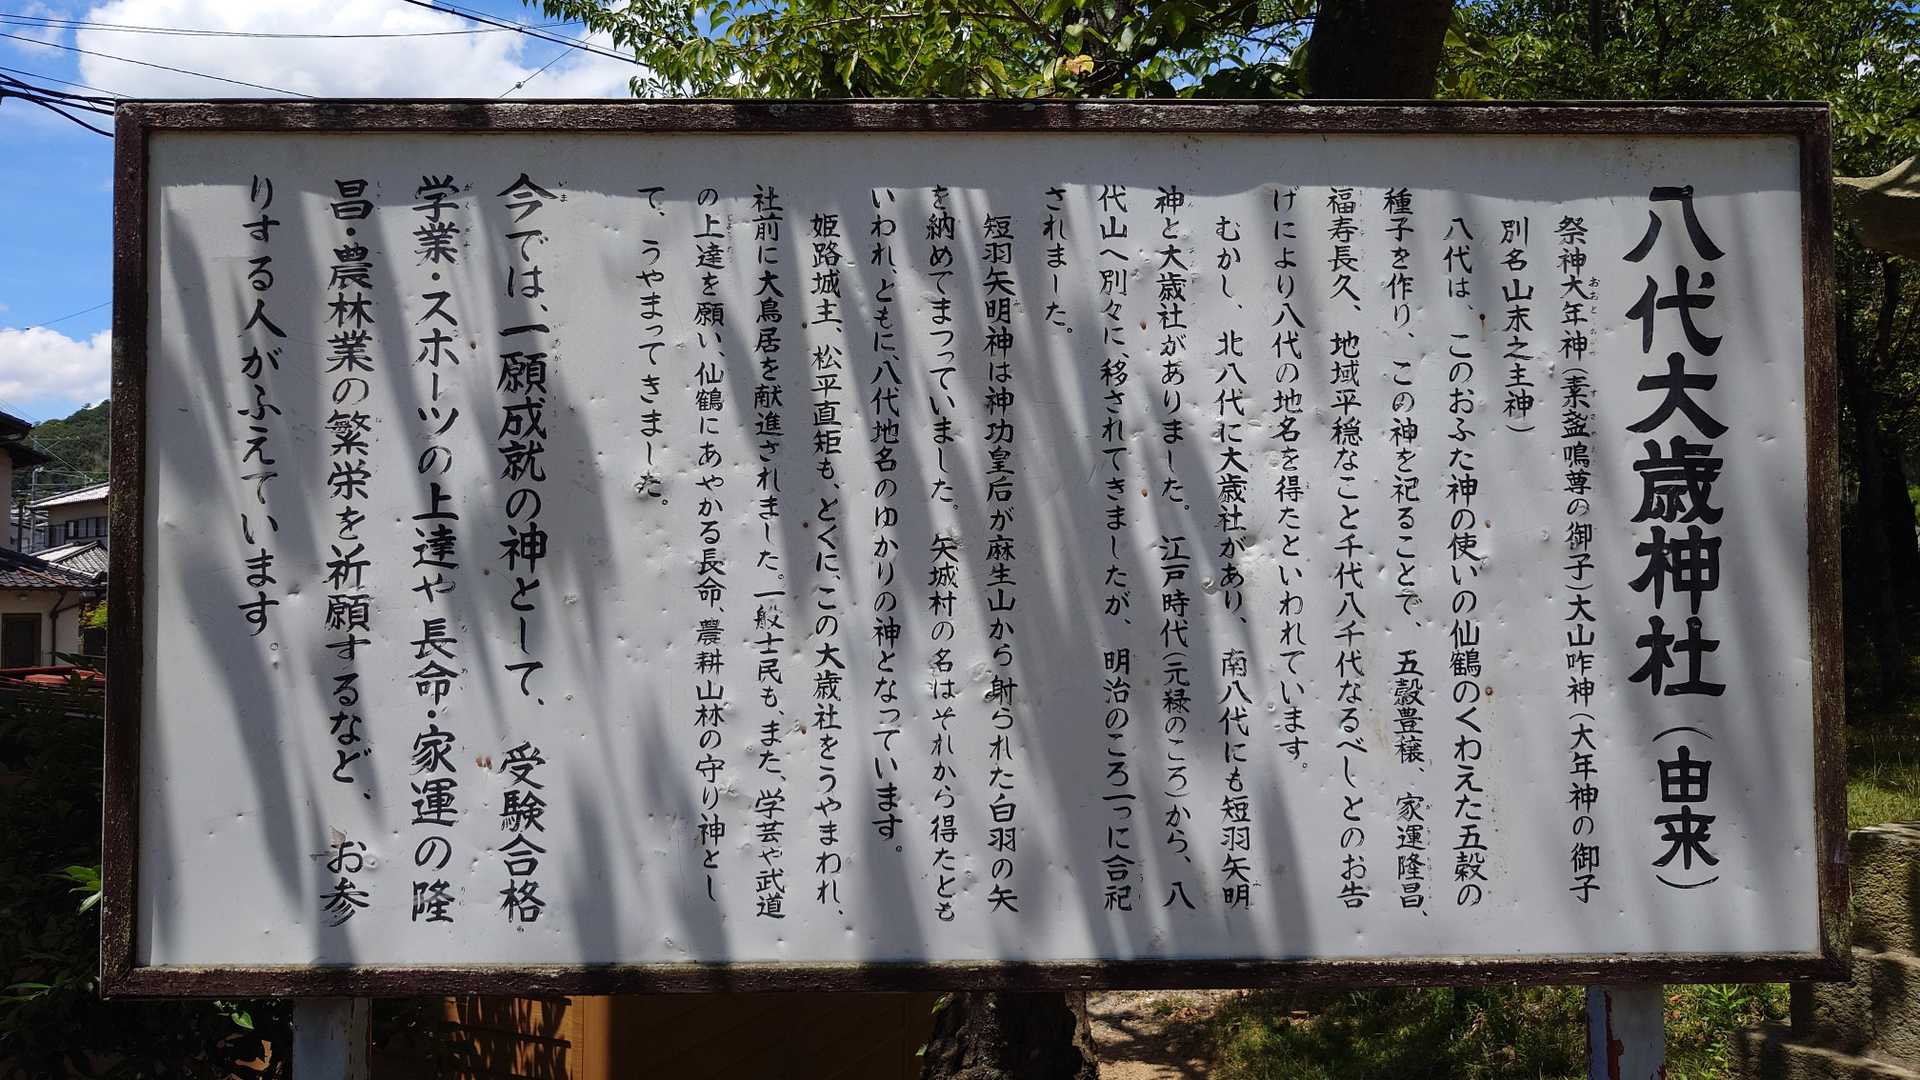 八代大歳神社（由来）
祭神大年神（素盞鳴尊の御子）大山咋神（大年神の御子
別名山末之主神）
八代は、このおふた神の使いの仙鶴のくわえた五穀の
種子を作り、この神を祀ることで、五穀豊穣、家運隆昌、
福寿長久、地域平穏なこと千代八千代なるべしとのお告
げにより八代の地名を得たといわれています。
むかし、北八代に大歳社があり、南八代にも短羽矢明
神と大歳社がありました。江戸時代（元禄のころ）から、八
代山へ別々に、移されてきましたが、明治のころ一つに合祀
されました。
短羽矢明神は神功皇后が麻生山から射られた白羽の矢
を納めてまつっていました。矢城村の名はそれから得たとも
いわれ、ともに、八代地名のゆかりの神となっています。
姫路城主、松平直矩も、とくに、この大歳社をうやまわれ、
社前に大鳥居を献進されました。一般士民も、また、学芸や武道
の上達を願い、仙鶴にあやかる長命、農耕山林の守り神とし
て、うやまってきました。
今では、一願成就の神として、受験合格
学業・スポーツの上達や長命・家運の隆
昌・農林業の繁栄を祈願するなど、お参
りする人がふえています。